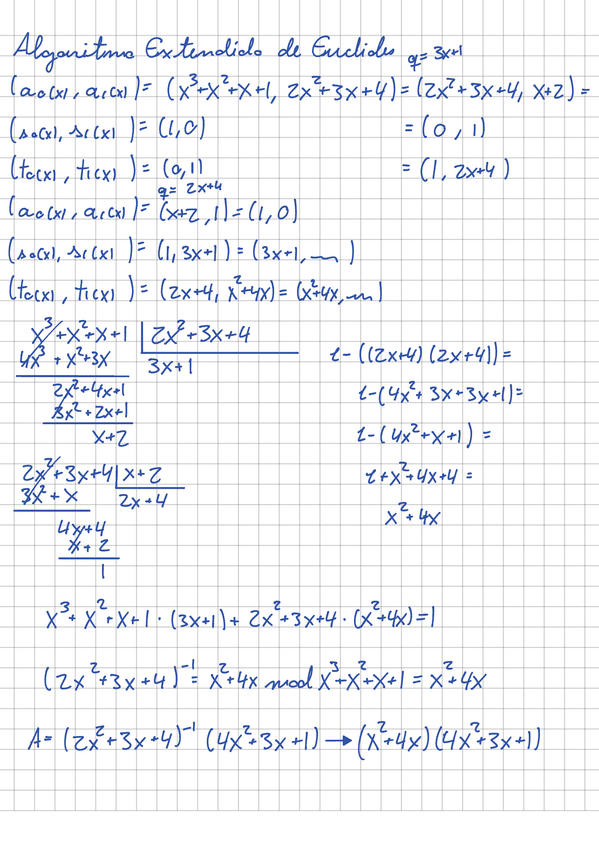 Algoritmo Extendido de Euclides q= 3x+1
(a₀(x), a₁(x))= (x³+x²+x+1, 2x²+3x+4)=(2x²+3x+4, x+2)=
(s₀(x), s₁(x))=(1,0) =(0,1)
(t₀(x), t₁(x))=(0,1) =(1, 2x+4)
q= 2x+4
(a₀(x), a₁(x))=(x+2,1)=(1,0)
(s₀(x), s₁(x))=(1,3x+1)=(3x+1, )
(t₀(x), t₁(x))=(2x+4, x²+4x)=(x²+4x, )
x³+x²+x+1 | 2x²+3x+4
4x³+x²+3x 3x+1
2x²+4x+1
3x²+2x+1
x+2
1-((2x+4)(2x+4))=
1-(4x²+3x+3x+1)=
1-(4x²+x+1)=
1+x²+4x+4=
x²+4x
2x²+3x+4 | x+2
3x²+x 2x+4
4x+4
x+2
1
x³+x²+x+1·(3x+1)+2x²+3x+4·(x²+4x)=1
(2x²+3x+4)⁻¹=x²+4x mod x³+x²+x+1=x²+4x
A=(2x²+3x+4)⁻¹(4x²+3x+1)→(x²+4x)(4x²+3x+1)